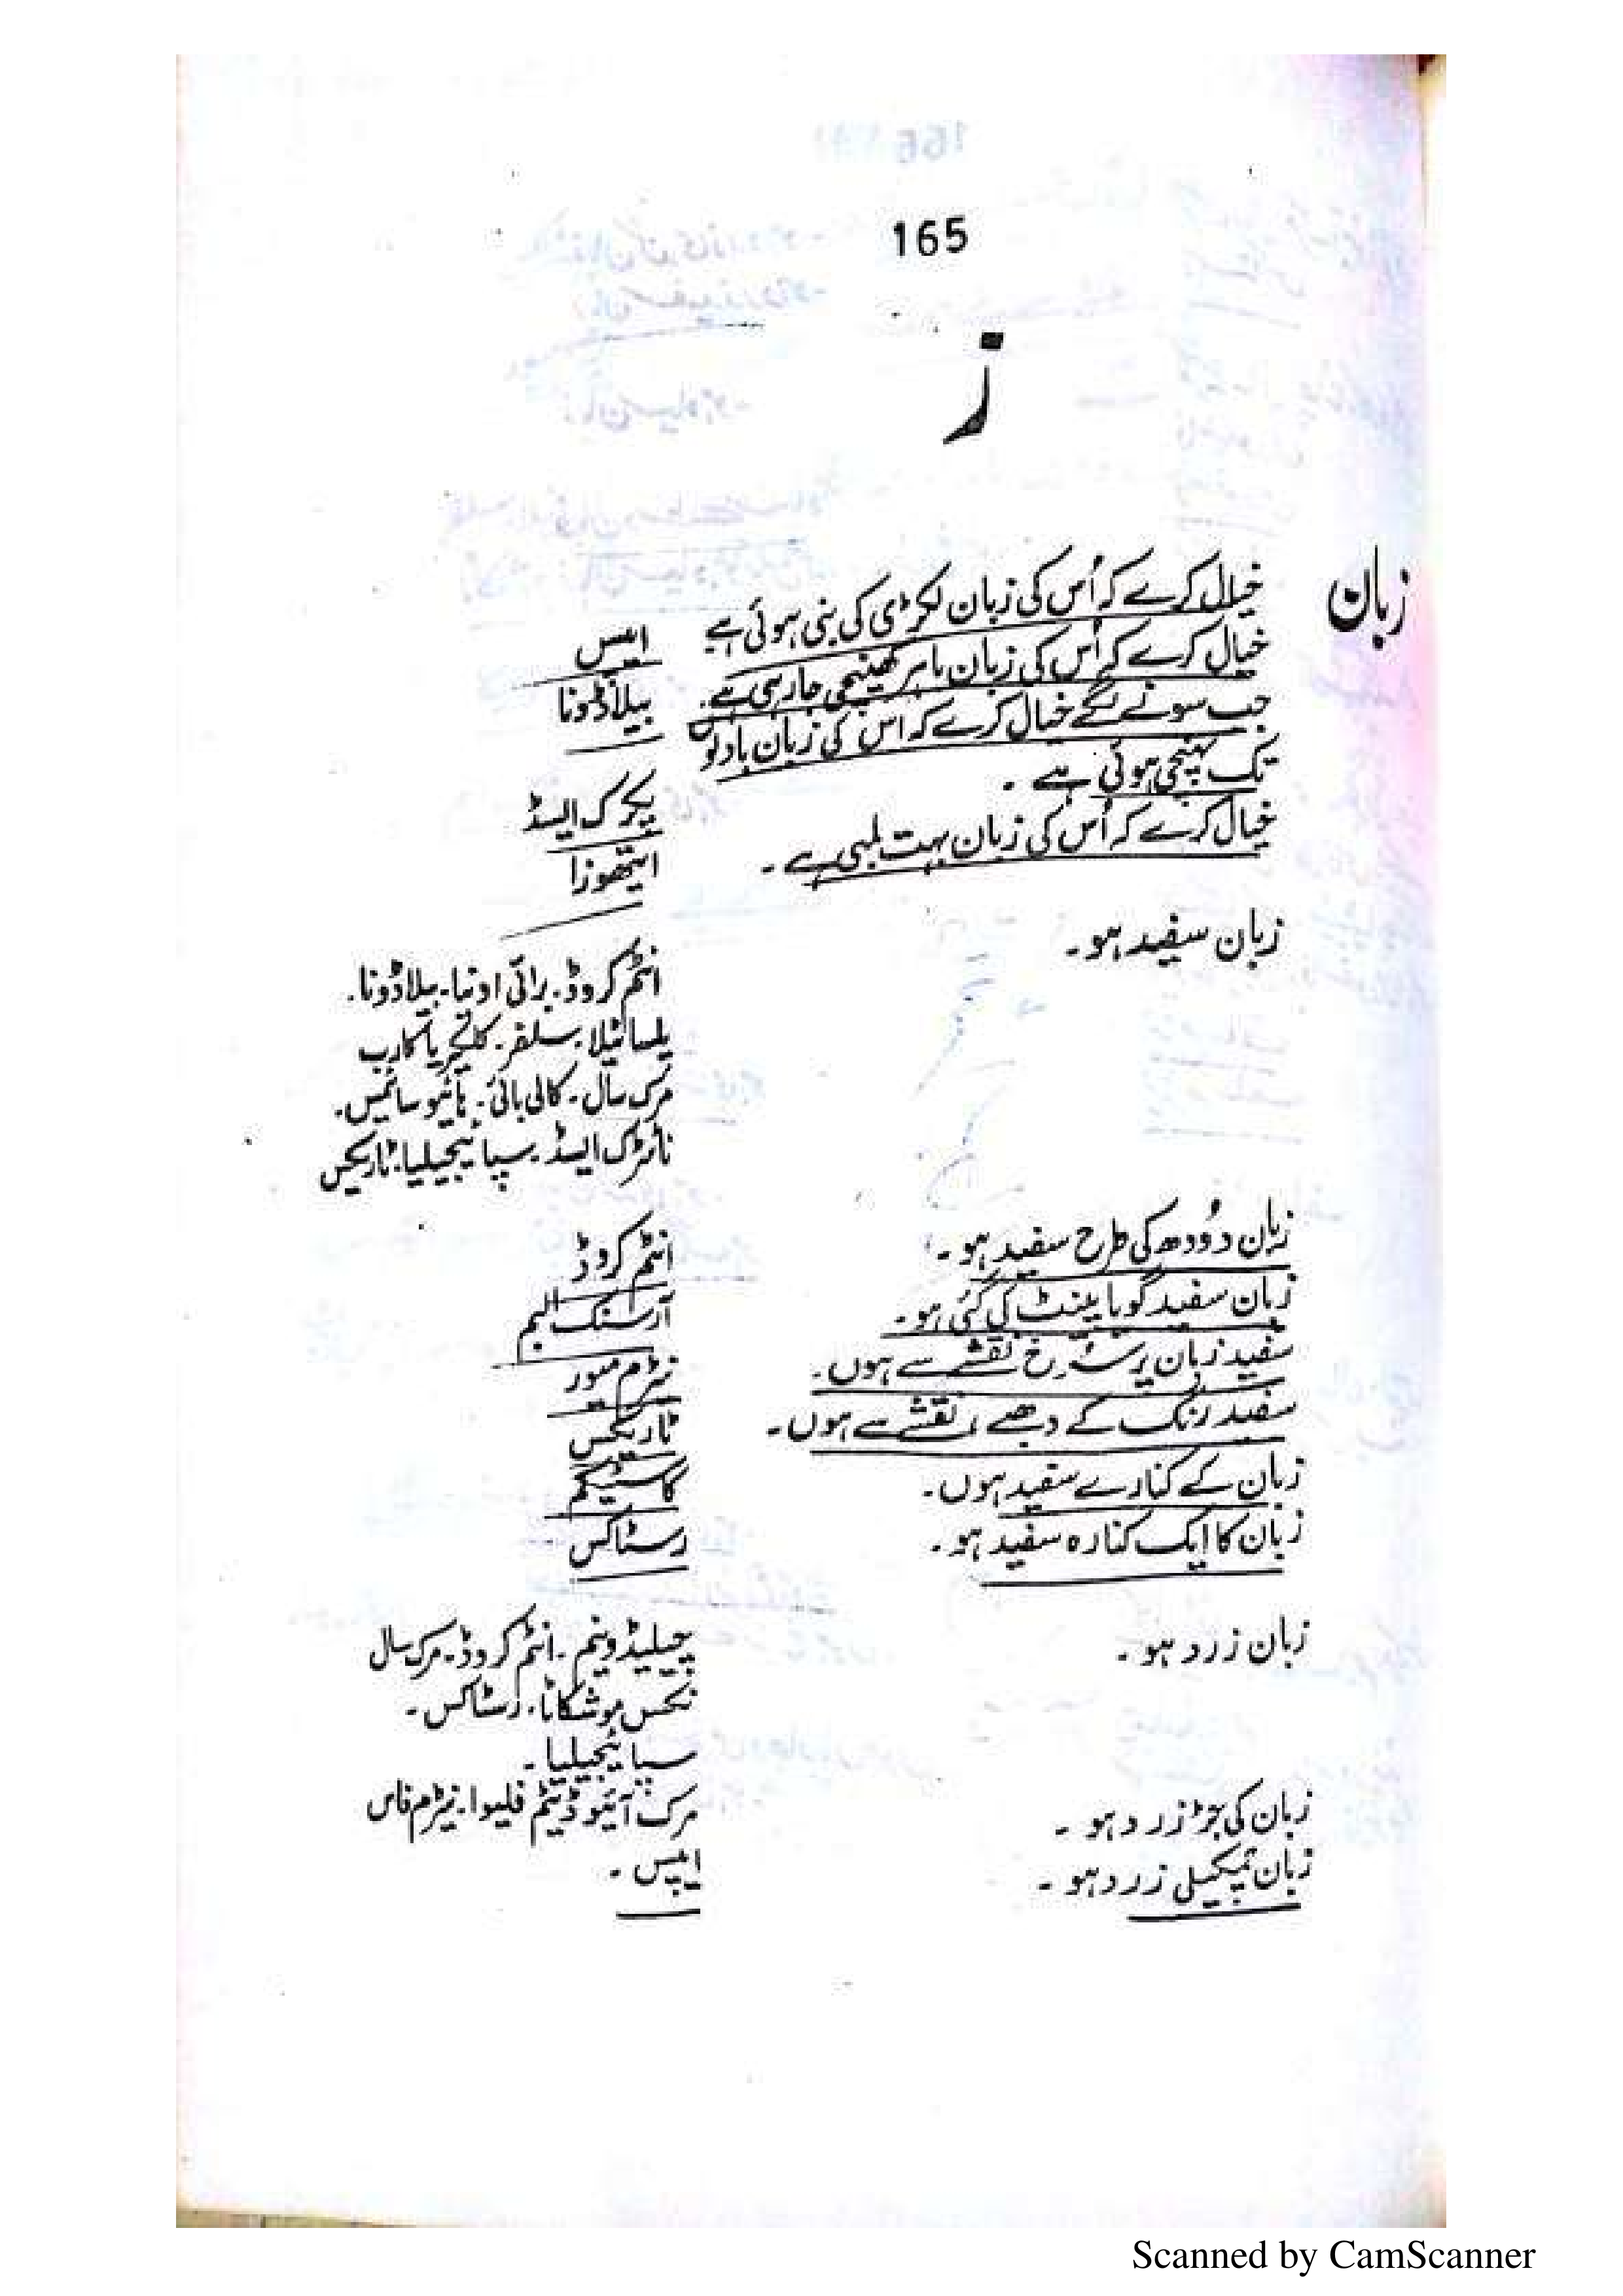 165
ز
زبان
خیال کرے کہ اُس کی زبان لکڑی کی بنی ہوئی ہے
ایپس
خیال کرے کہ اُس کی زبان باہر کھینچی جا رہی ہے۔
بیلاڈونا
جب سونے لگے خیال کرے کہ اس کی زبان بادلوں
تک پہنچی ہوئی ہے ۔
پکرک ایسڈ
خیال کرے کہ اُس کی زبان بہت لمبی ہے ۔
ایتھوزا
زبان سفید ہو۔
انٹم کروڈ۔ برائی اونیا۔ بیلاڈونا۔
پلساٹیلا۔ سلفر۔ کلکیریا کارب
مرک سال۔ کالی بائی۔ ہائیوسائمس۔
نائٹرک ایسڈ۔ سپائیجیلیا۔ ٹاریکس
زبان دُودھ کی طرح سفید ہو۔
انٹم کروڈ
زبان سفید گویا پینٹ کی گئی ہو۔
آرسنک البم
سفید زبان پر سُرخ نقشے سے ہوں۔
نیٹرم میور
سفید رنگ کے دھبے نقشے سے ہوں۔
ٹاریکس
زبان کے کنارے سفید ہوں۔
کاسٹیکم
زبان کا ایک کنارہ سفید ہو۔
رسٹاکس
زبان زرد ہو۔
چیلیڈونیم۔ انٹم کروڈ۔ مرک سال
نکس موشکاٹا۔ رسٹاکس۔
سپائیجیلیا۔
زبان کی جڑ زرد ہو ۔
مرک آئیوڈیٹم فلیوا۔ نیٹرم فاس
زبان چمکیلی زرد ہو ۔
ایپس ۔
Scanned by CamScanner